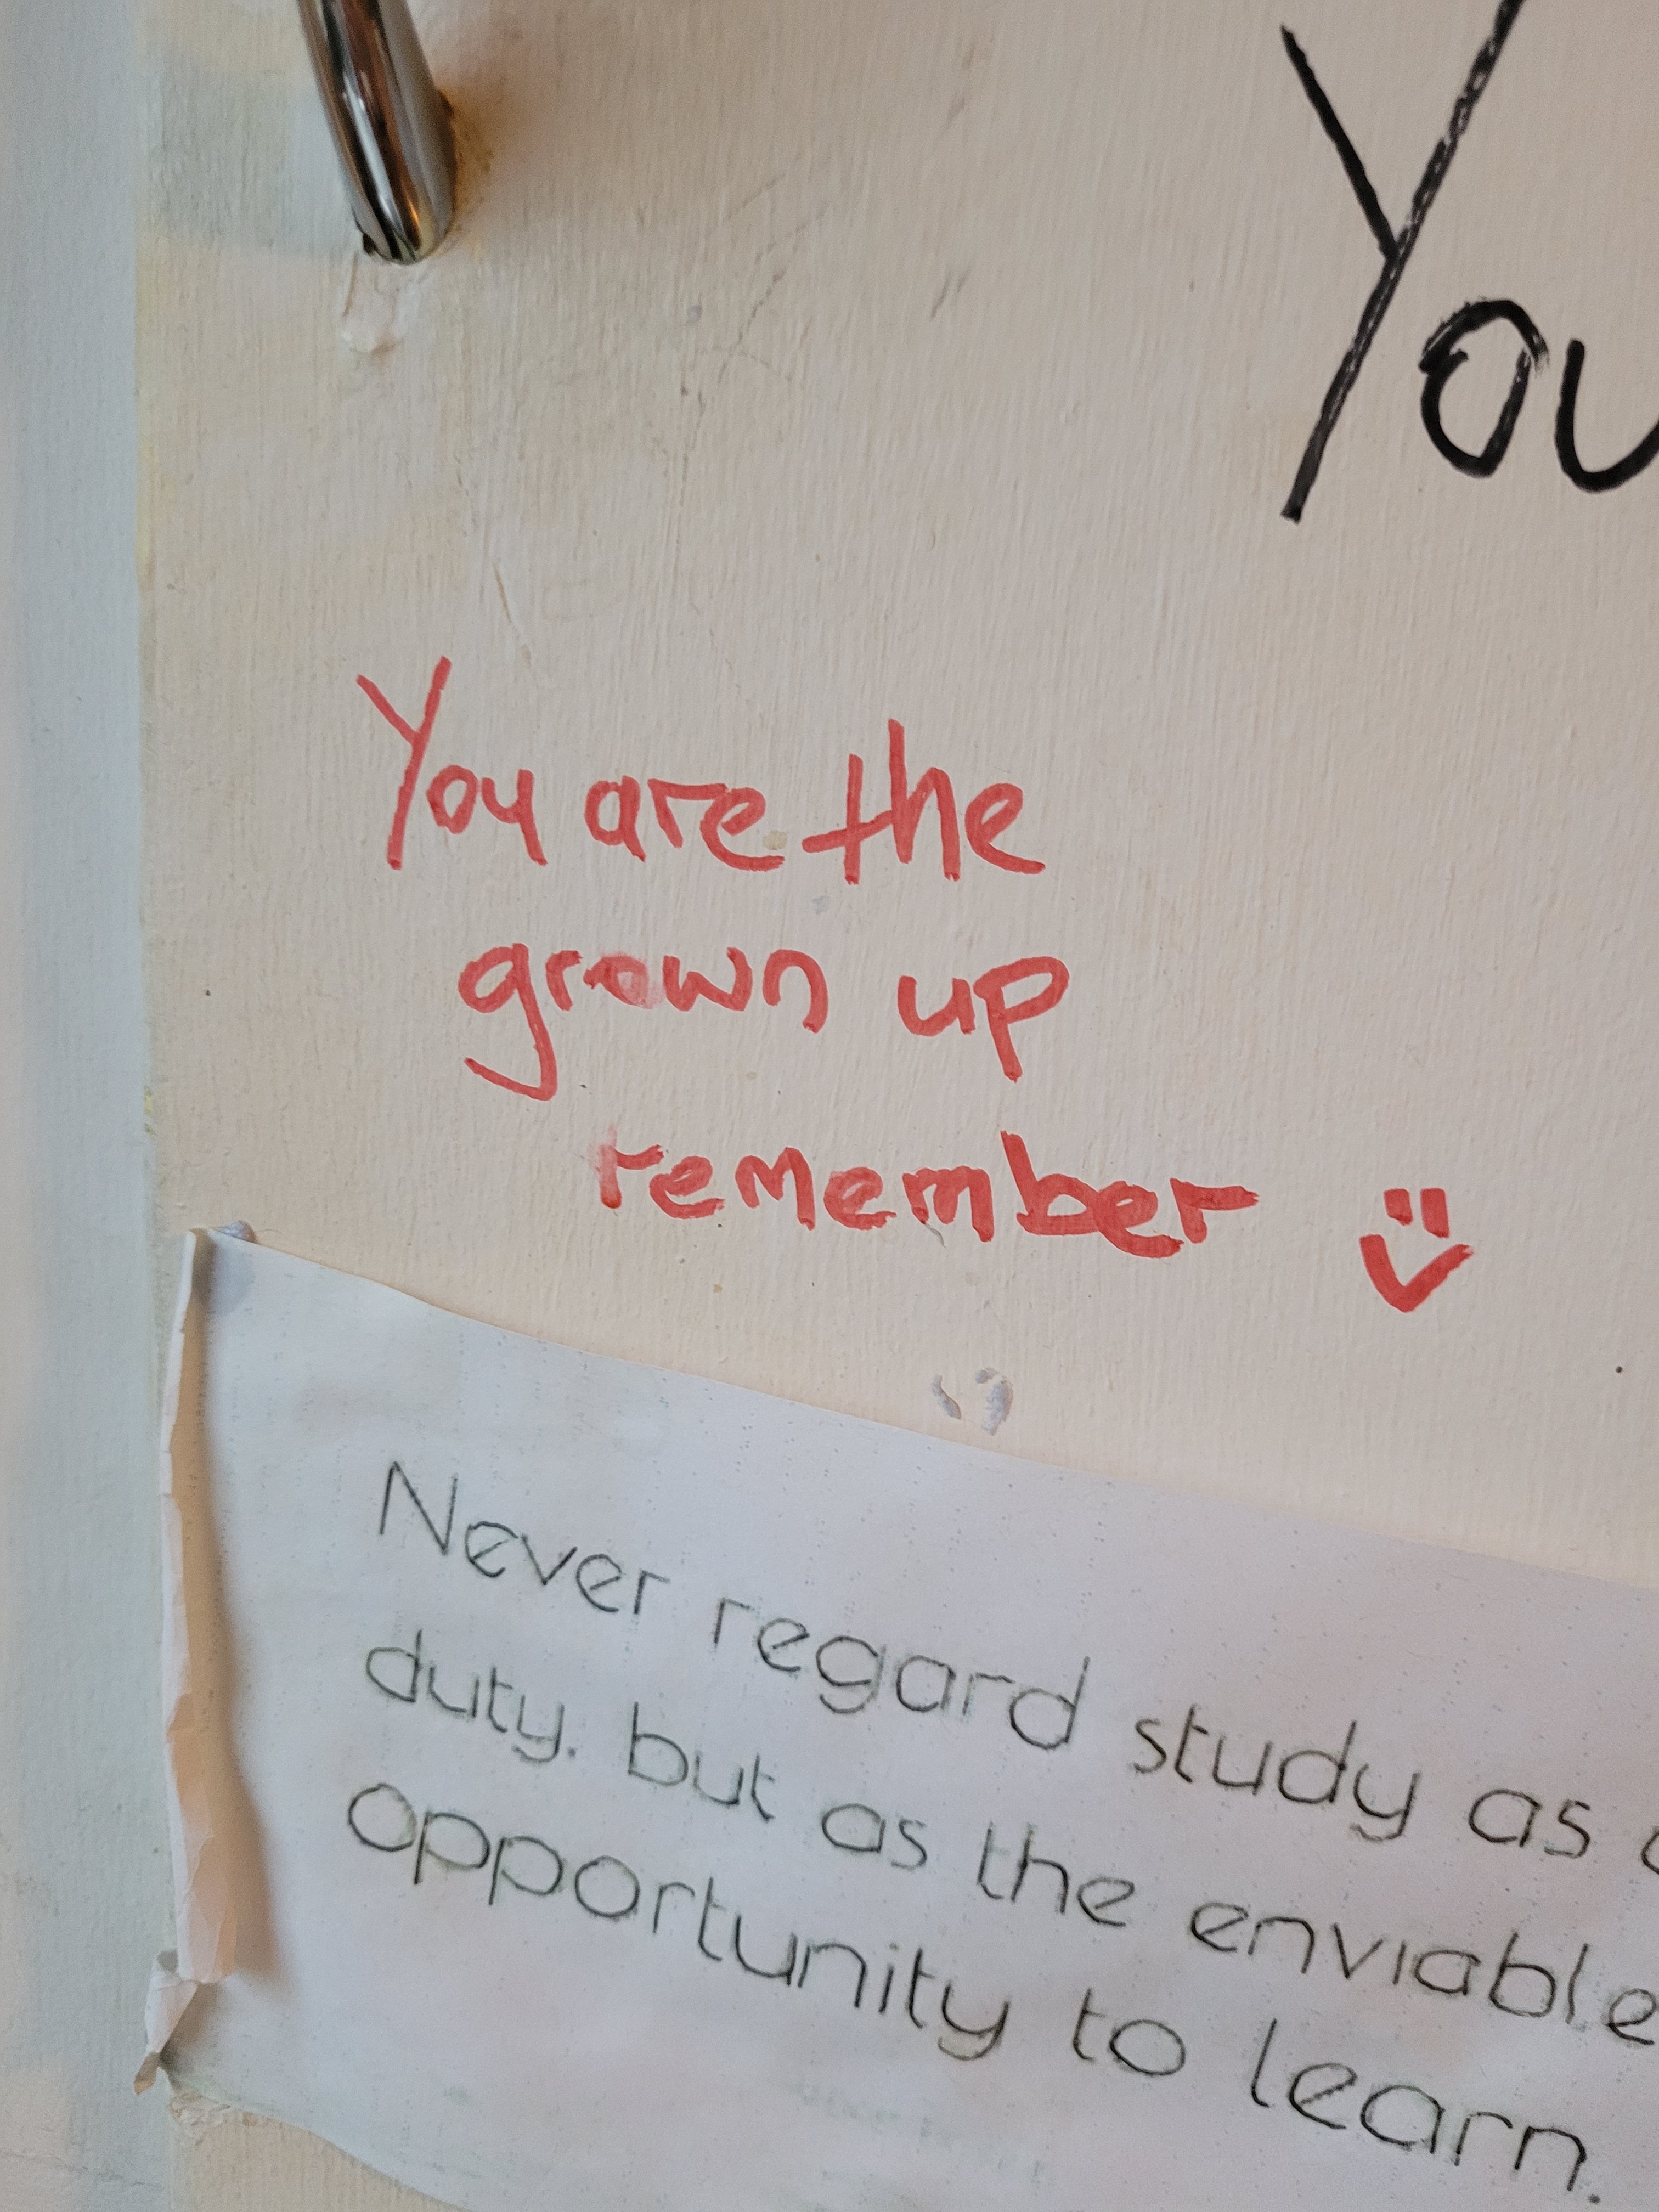 You
You are the
grown up
remember
Never regard study as
duty, but as the enviable
opportunity to learn.